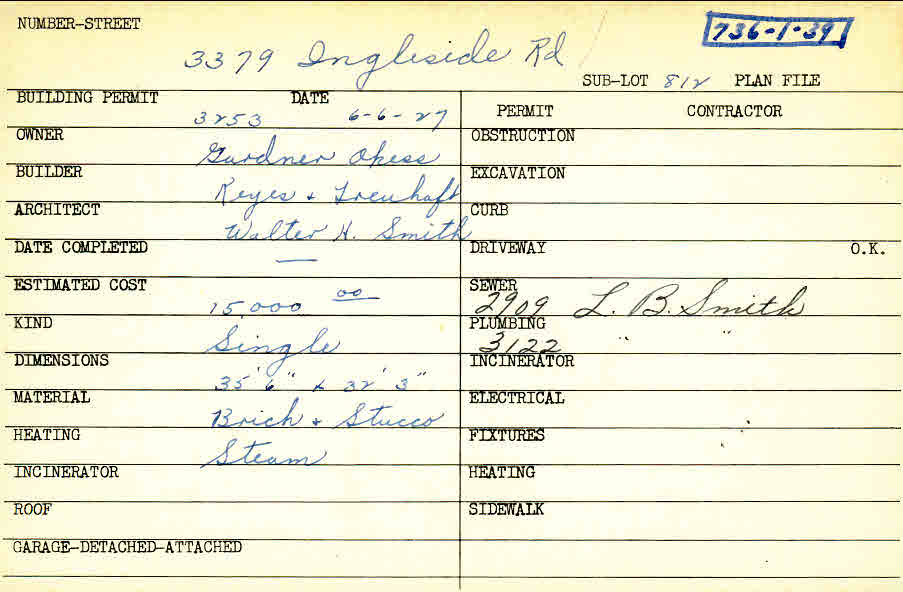 NUMBER-STREET
736-1-39
3379 Ingleside Rd
SUB-LOT 812 PLAN FILE
BUILDING PERMIT DATE
3253 6-6-27
PERMIT CONTRACTOR
OWNER
Gardner
OBSTRUCTION
BUILDER
Keyes + Treuhaft
EXCAVATION
ARCHITECT
Walter H. Smith
CURB
DATE COMPLETED
—
DRIVEWAY O.K.
ESTIMATED COST
15,000 00
SEWER
2909 L. B. Smith
KIND
Single
PLUMBING
3122 " "
DIMENSIONS
35' 6" x 32' 3"
INCINERATOR
MATERIAL
Brick + Stucco
ELECTRICAL
HEATING
Steam
FIXTURES
INCINERATOR
HEATING
ROOF
SIDEWALK
GARAGE-DETACHED-ATTACHED